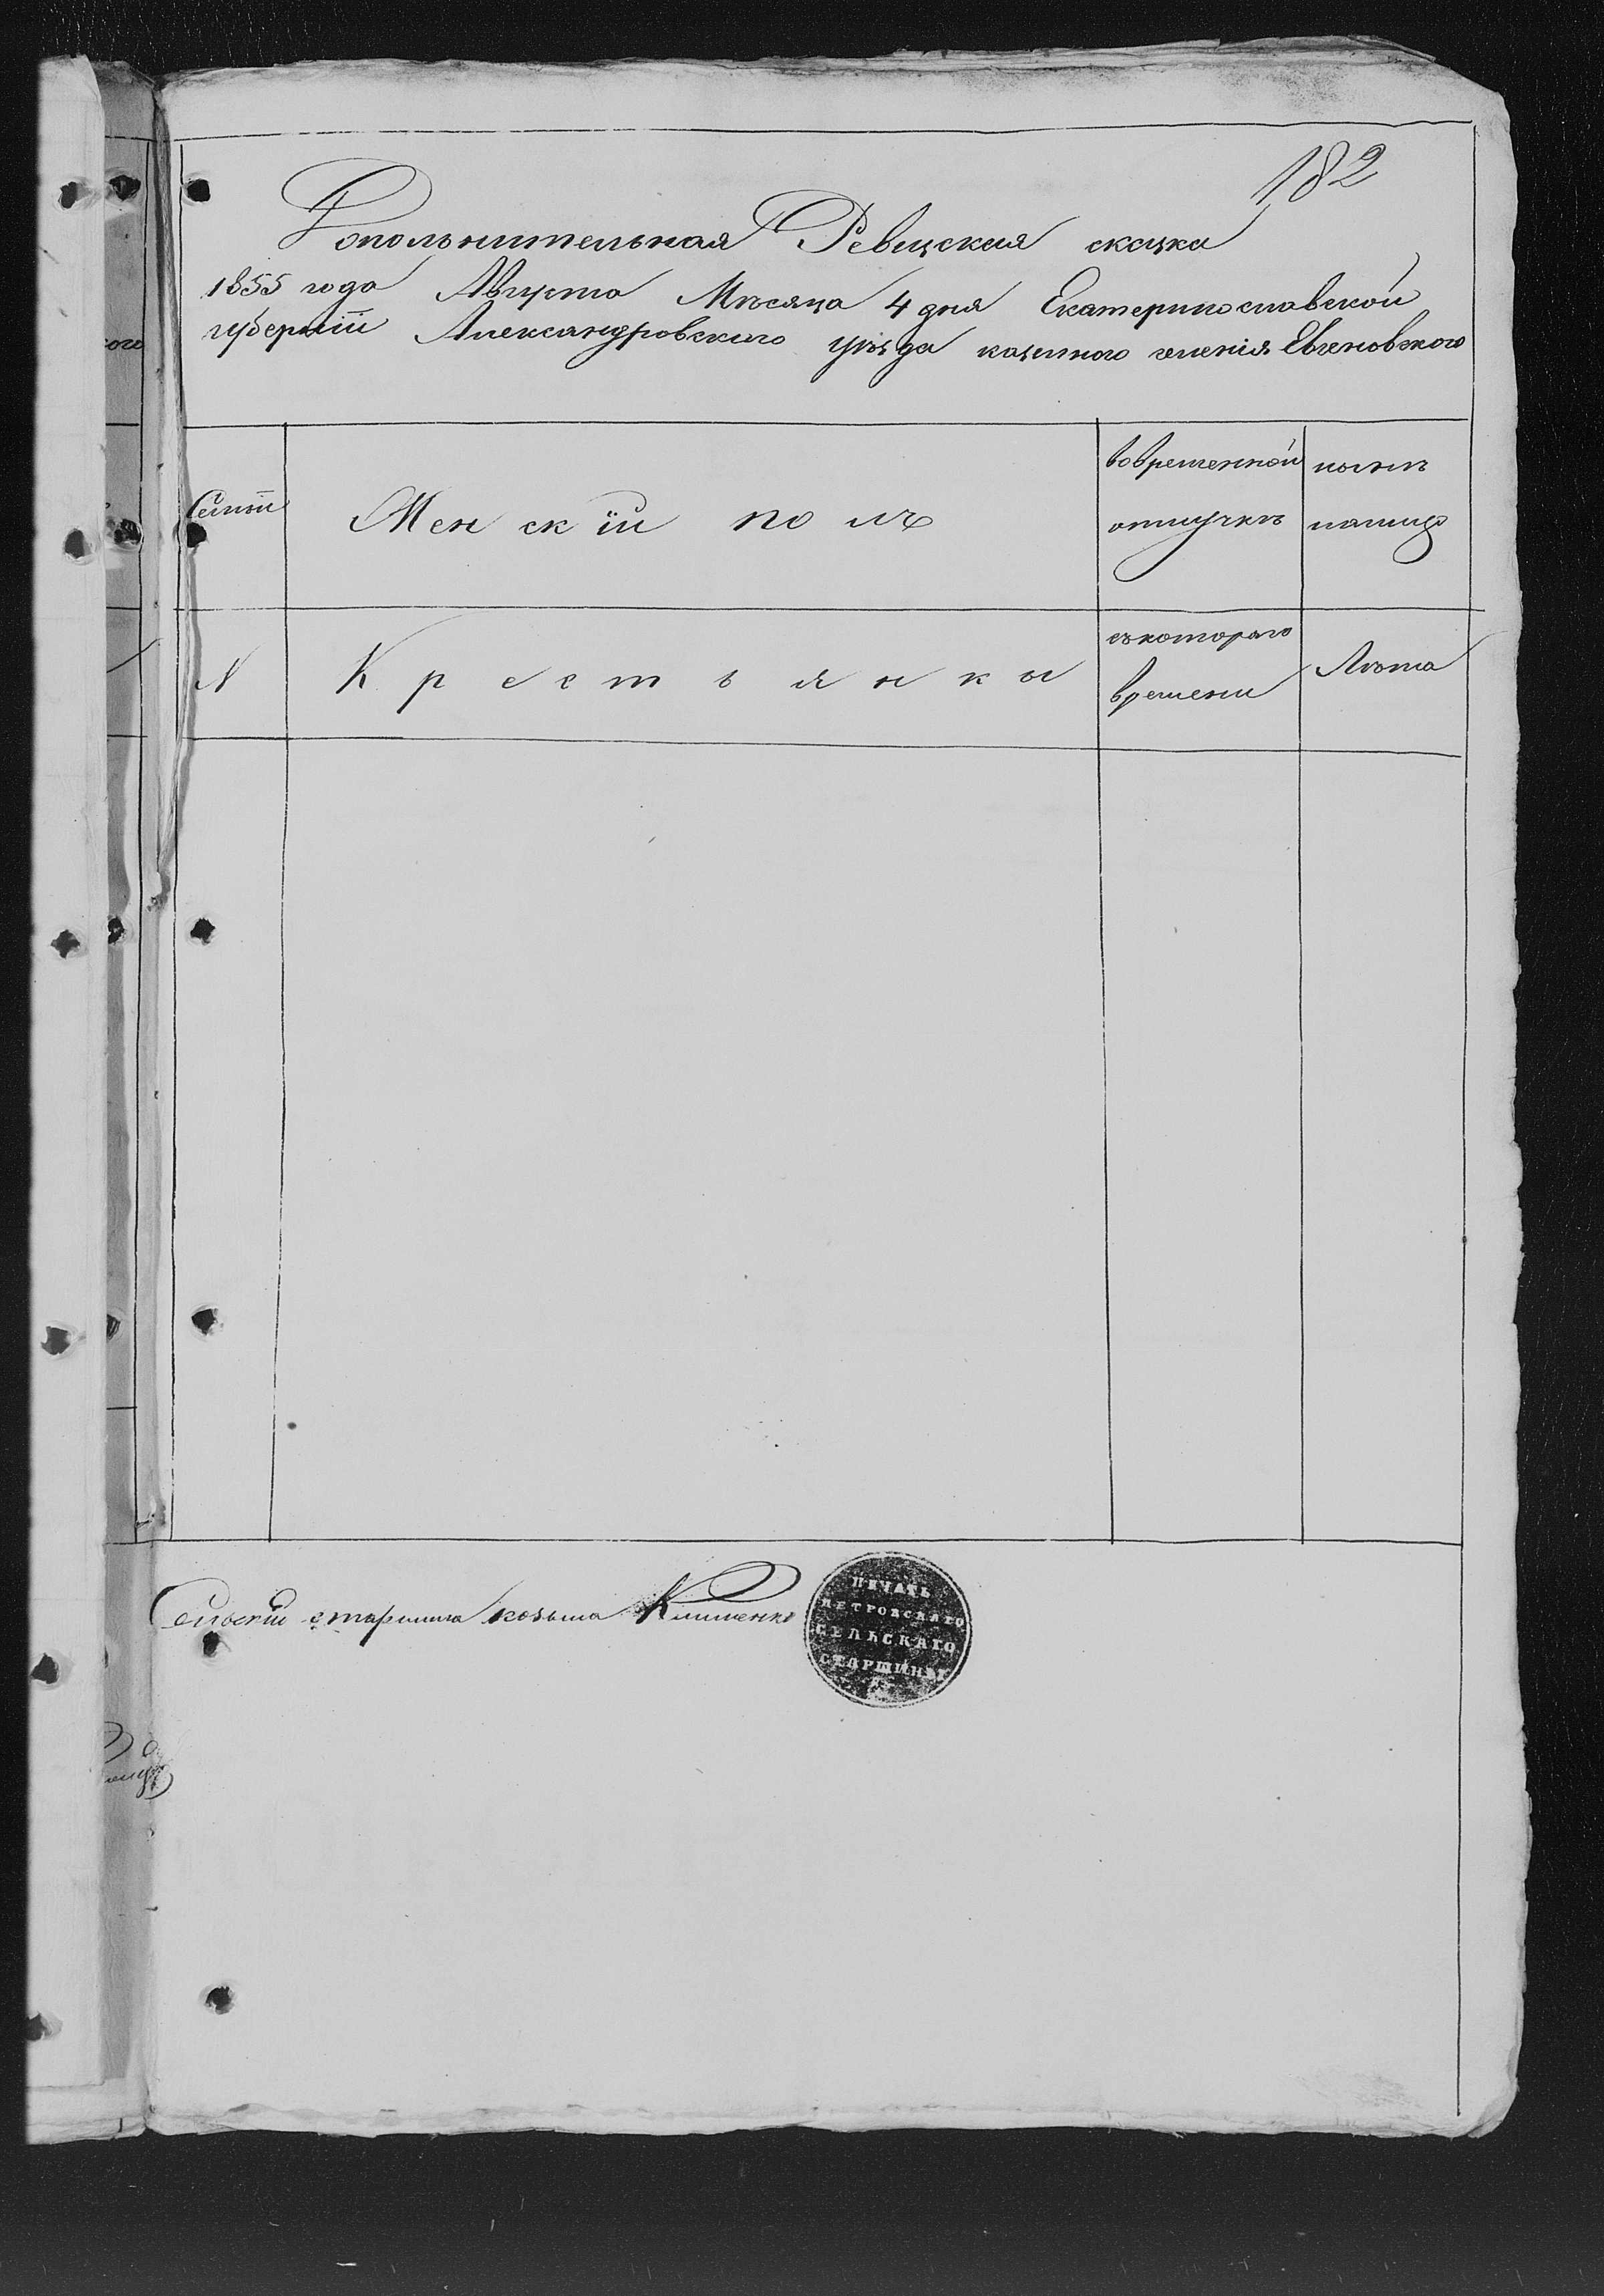 182
Дополнительная Ревизская сказка
1855 года Августа Мѣсяца 4 дня Екатеринославской
губерніи Александровскаго уѣзда казенного селенія Евгеновского
Семьи
Женскій полъ
во временной
отлучкѣ
нынѣ
налицо
N
Крестьянки
съ котораго
времени
Лѣта
Сельскій старшина козьма Клименко
ПЕЧАТЬ
ПЕТРОВСКАГО
СЕЛЬСКАГО
СТАРШИНЫ